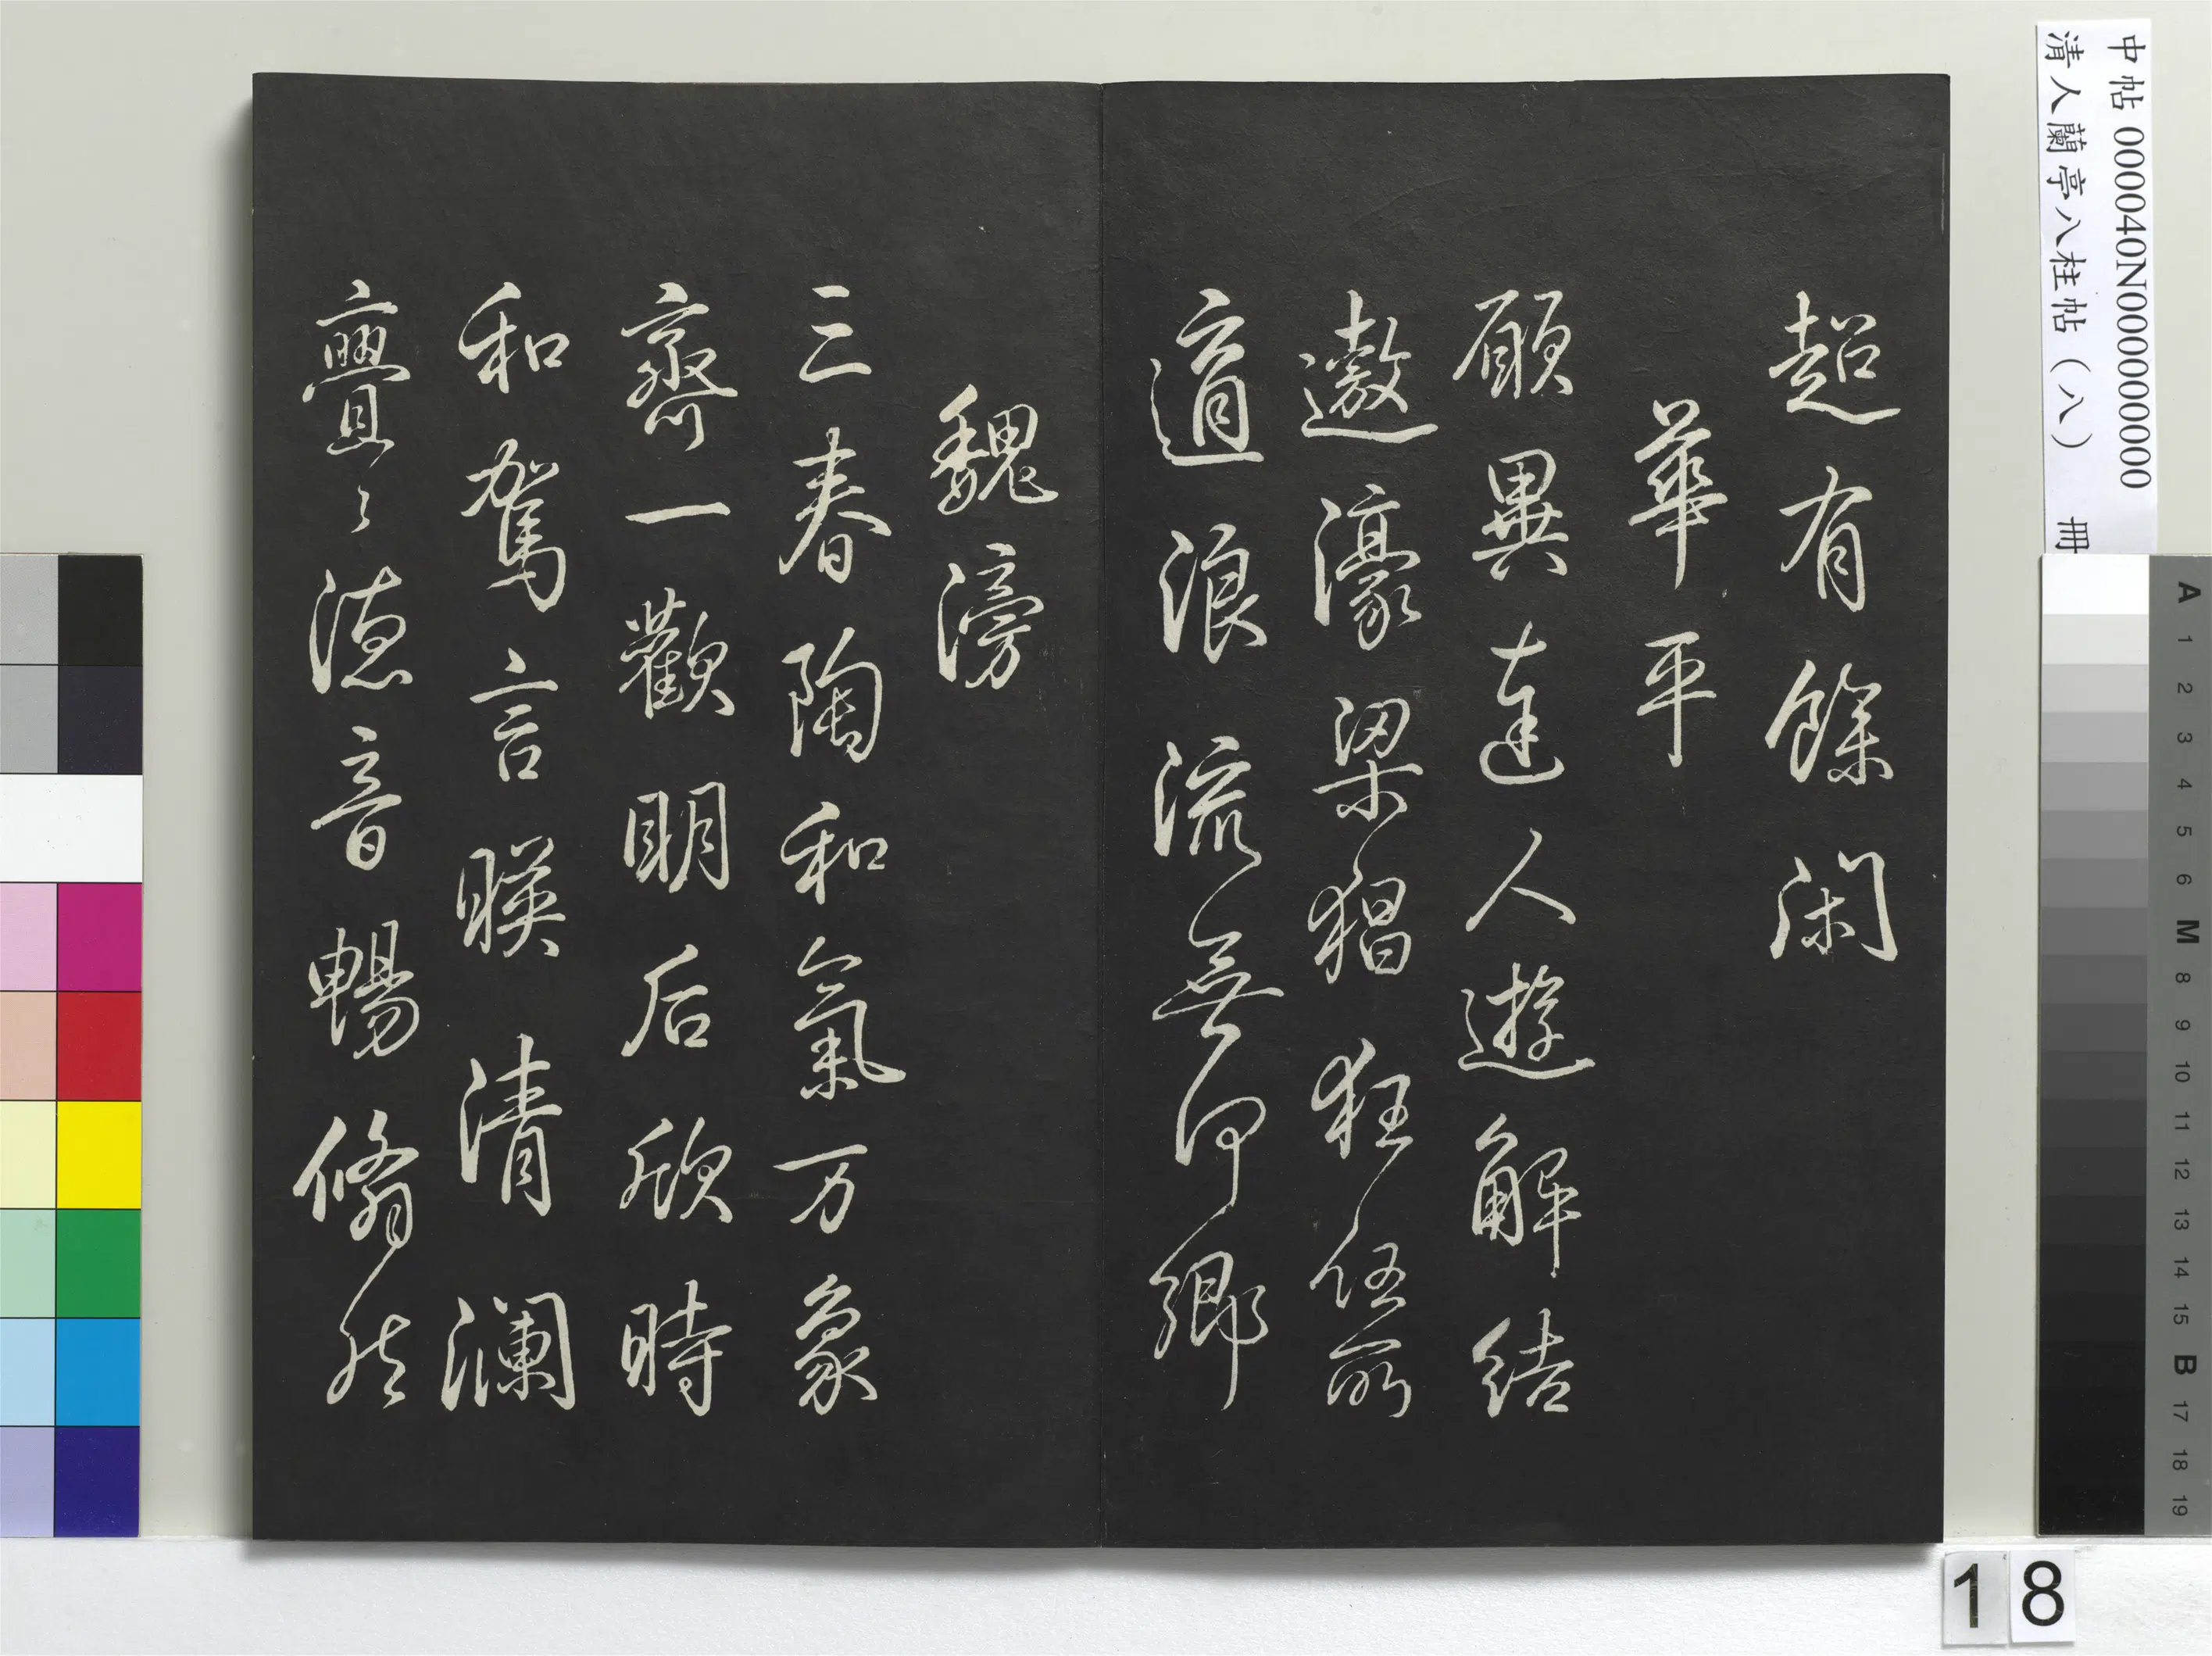 超有餘閑
華平
願與達人遊解結
遨濠梁猖狂任所
適浪流無何鄉
魏滂
三春陶和氣万象
齊一歡明后欣時
和駕言暎清瀾
亹々德音暢翛然
中帖 000040N000000000
清人蘭亭八柱帖（八） 冊
A 1 2 3 4 5 6 M 8 9 10 11 12 13 14 15 B 17 18 19
18